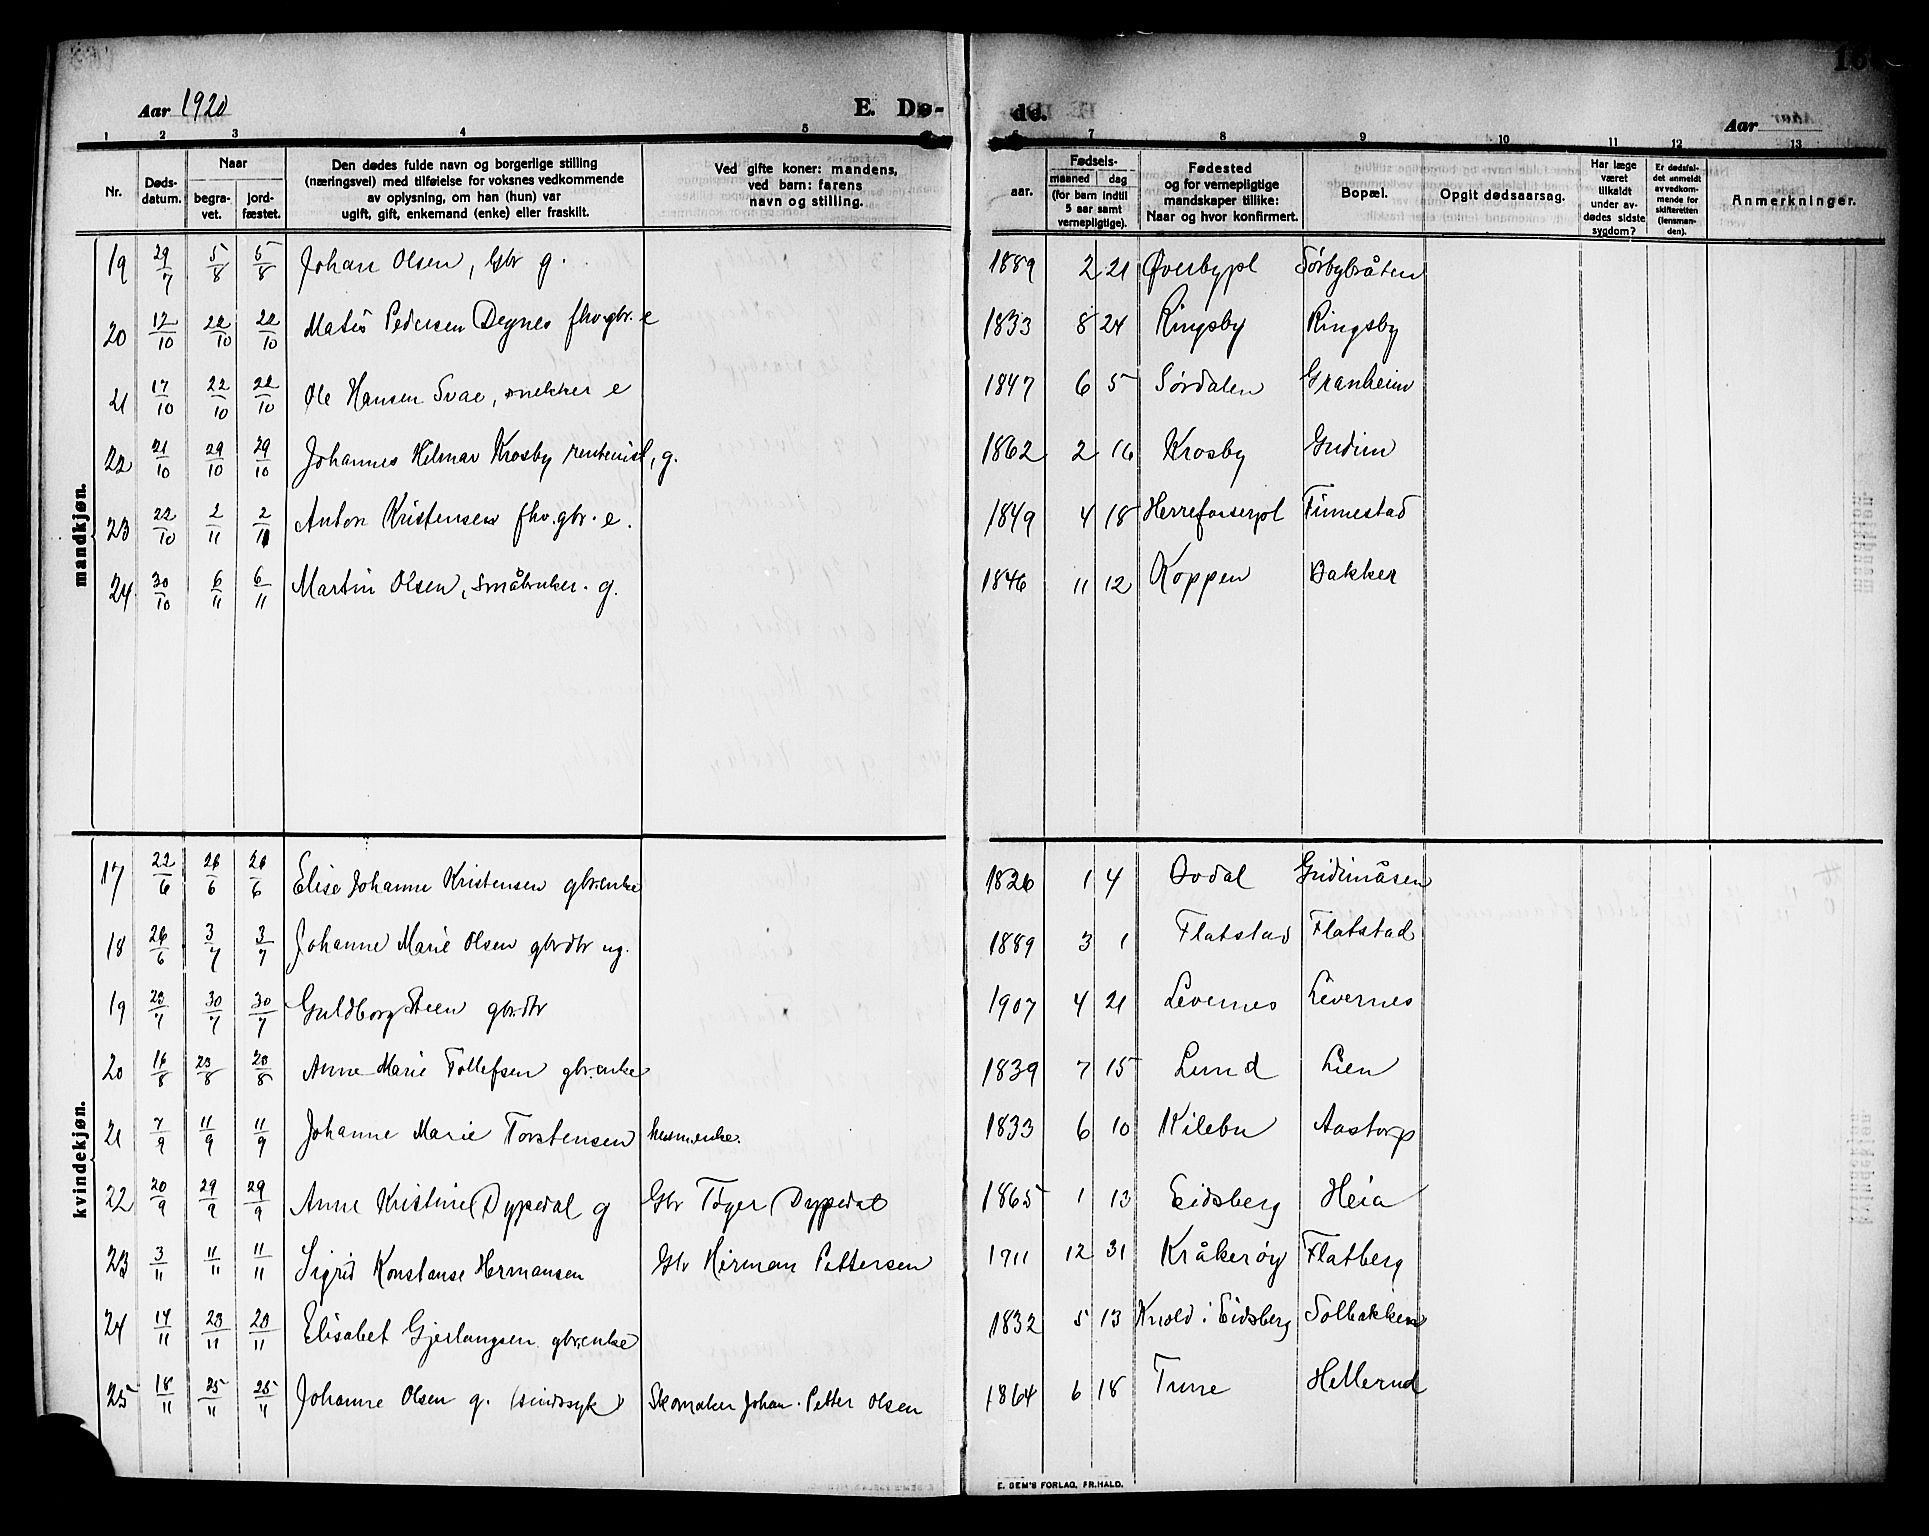 Aar 1920
E. Dø-
de.
16
Aar
1 2 3 4 5 6 7 8 9 10 11 12 13
Nr.
Døds-datum.
Naar
begra-vet.
jord-fæstet.
Den dødes fulde navn og borgerlige stilling
(næringsvei) med tilføielse for voksnes vedkommende
av oplysning, om han (hun) var
ugift, gift, enkemand (enke) eller fraskilt.
Ved gifte koner: mandens,
ved barn: farens
navn og stilling.
aar.
Fødsels-
maaned dag
(for barn indtil
5 aar samt
vernepligtige).
Fødested
og for vernepligtige
mandskaper tillike:
Naar og hvor konfirmert.
Bopæl.
Opgit dødsaarsag.
Har læge
været
tilkaldt
under av-
dødes sidste
sygdom?
Er dødsfal-
det anmeldt
av vedkom-
mende for
skifteretten
(lensman-
den).
Anmerkninger.
mandkjøn.
19 29/7 5/8 5/8 Johan Olsen, Gbr g. 1889 2 21 Øverbypl Sørbybråten
20 12/10 22/10 22/10 Matis Pedersen Degnes fhv.gbr. e 1833 8 24 Ringsby Ringsby
21 17/10 22/10 22/10 Ole Hansen Svae, snekker e 1847 6 5 Sørdalen Granheim
22 21/10 29/10 29/10 Johannes Hilmar Krosby rentenist, g. 1862 2 16 Krosby Gudim
23 22/10 2/11 2/11 Anton Kristensen fhv.gbr. e. 1849 4 18 Herrefosserpl Finnestad
24 30/10 6/11 6/11 Martin Olsen, småbruker. g. 1846 11 12 Koppen Bakker
kvindekjøn.
17 22/6 26/6 26/6 Elise Johanne Kristensen gbr.enke 1826 1 4 Gudimåsen
18 26/6 3/7 3/7 Johanne Marie Olsen gbrdtr ug. 1889 3 1 Flatstad Flatstad
19 23/7 30/7 30/7 Guldborg Steen gbr.dtr 1907 4 21 Levernes Levernes
20 16/8 23/8 23/8 Anne Marie Tollefsen gbr.enke 1839 7 15 Lund Lien
21 7/9 11/9 11/9 Johanne Marie Torstensen husm.enke. 1833 6 10 Kilebu Aastorp
22 20/9 29/9 29/9 Anne Kristine Dypedal g Gbr Tøger Dypedal 1865 1 13 Eidsberg Heia
23 3/11 11/11 11/11 Sigrid Konstanse Hermansen Gbr Herman Pettersen 1911 12 31 Kråkerøy Flatberg
24 14/11 23/11 23/11 Elisabet Gjerlaugsen gbr.enke 1832 5 13 Knold i Eidsberg Solbakken
25 18/11 25/11 25/11 Johanne Olsen g. (sindssyk) Skomaker Johan Petter Olsen 1864 6 18 Tune Hellerud
E. SEM'S FORLAG, FR.HALD.